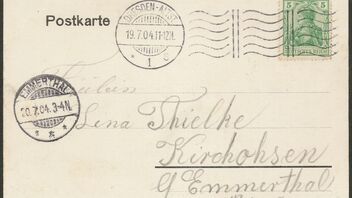 Postkarte
DRESDEN-ALTST.
19.7.04.11-12N.
1 c
5 5
DEUTSCHES REICH
EMMERTHAL
20.7.04.3-4N.
Fräulein
Lena Thielke
Kirchohsen
Emmerthal